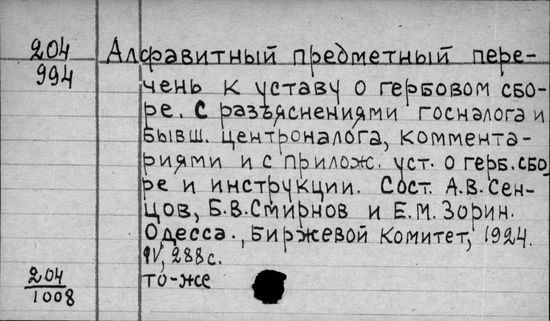 204
994
Алфавитный предметный пере-
чень к уставу о гербовом сбо-
ре. С разъяснениями госналога и
бывш. центроналога, коммента-
риями и с прилож. уст. о герб. сбо
ре и инструкции. Сост. А.В. Сен-
цов, Б.В. Смирнов и Е.М. Зорин.
Одесса., Биржевой комитет, 1924.
288 с.
204
1008
то-же